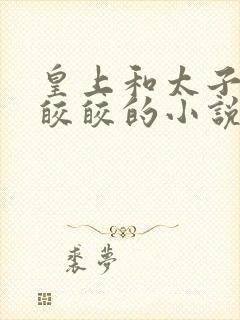 皇上和太子
皎皎的小說
裘夢